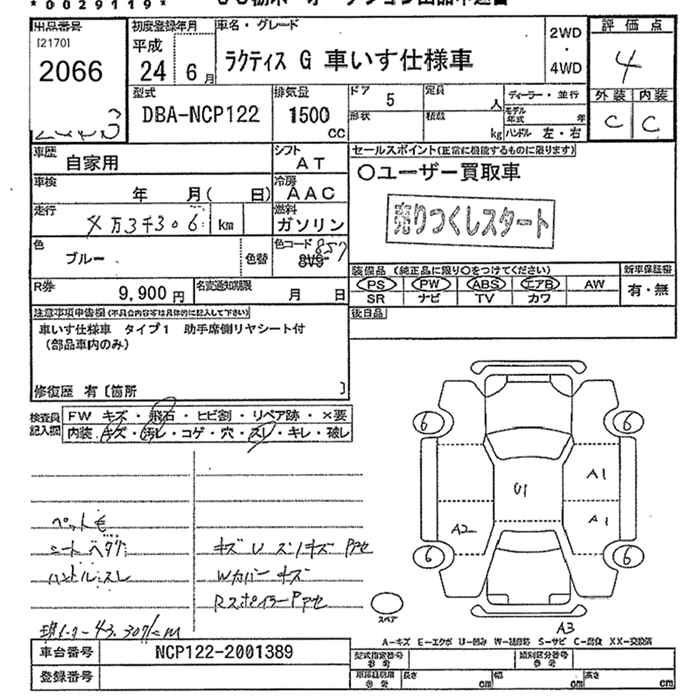 *0029119*
出品番号
[2170]
2066
初度登録年月
平成
24年6月
車名・グレード
ラクティス G 車いす仕様車
2WD
・
4WD
評価点
4
外装 内装
C C
型式
DBA-NCP122
排気量
1500
CC
ドア 5
定員 人
形状
積載 kg
ディーラー・並行
モデル年式 年
ハンドル 左・右
車歴
自家用
シフト
AT
セールスポイント(正常に機能するものに限ります)
○ユーザー買取車
売りつくしスタート
車検
年 月( 日)
冷房
AAC
走行
4万3千306 km
燃料
ガソリン
色
ブルー
色替
色コード
857
8V9
装備品 (純正品に限り○をつけてください)
新車保証書
PS PW ABS エアB AW
SR ナビ TV カワ
有・無
R券
9,900円
名変通知期限
月 日
後日品
注意事項申告欄(不具合内容等は具体的に記入して下さい)
車いす仕様車 タイプ1 助手席側リヤシート付
(部品車内のみ)
修復歴 有〔箇所 〕
検査員記入欄
FW キズ・飛石・ヒビ割・リペア跡・×要
内装 キズ・汚レ・コゲ・穴・スレ・キレ・破レ
6 6
U1
A1
A1
A2
6 6
スペア
A3
ペット毛
シートヘタリ
ハンドルスレ
キズ U
Wカバーキズ
Rスポイラー
43.307km
A-キズ E-エクボ U-凹み W-補修跡 S-サビ C-腐食 XX-交換済
車台番号
NCP122-2001389
登録番号
型式指定番号
参考
類別区分番号
参考
車庫証明用
参考
長さ cm
幅 cm
高さ cm